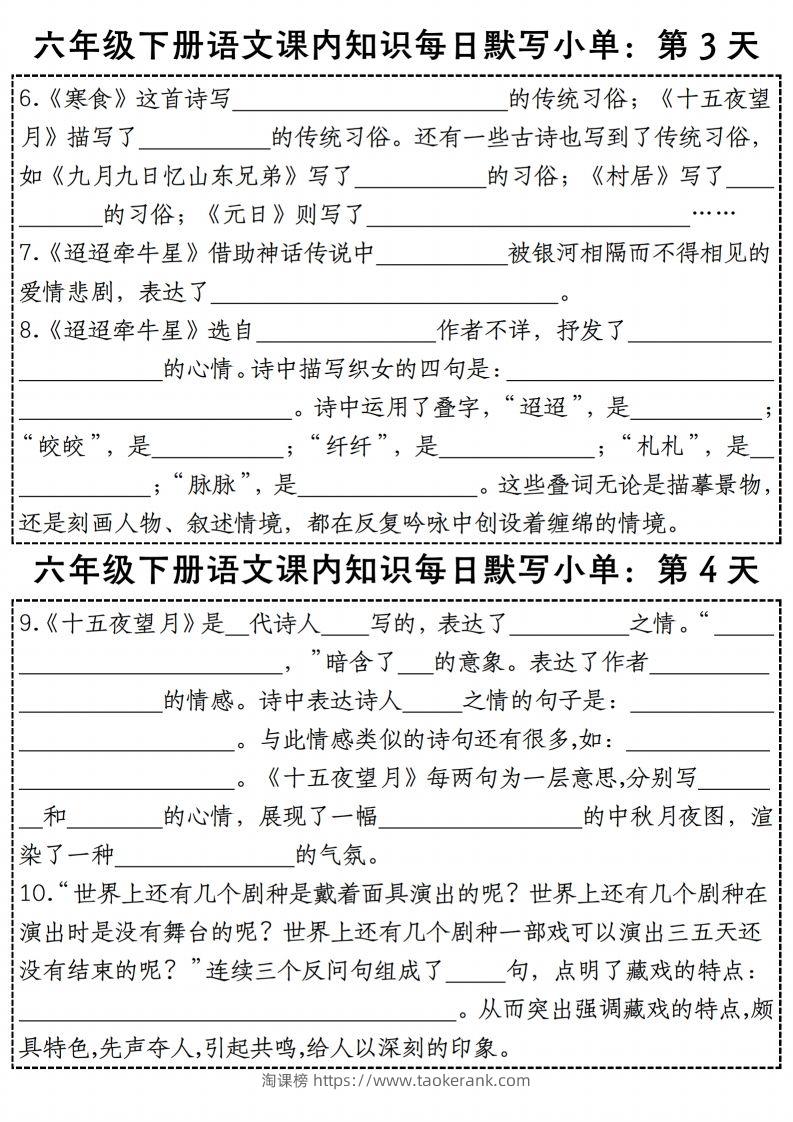 六年级下册语文课内知识每日默写小单：第 3 天
6.《寒食》这首诗写_______________________的传统习俗；《十五夜望
月》描写了___________的传统习俗。还有一些古诗也写到了传统习俗，
如《九月九日忆山东兄弟》写了___________的习俗；《村居》写了____
_______的习俗；《元日》则写了___________________________……
7.《迢迢牵牛星》借助神话传说中___________被银河相隔而不得相见的
爱情悲剧，表达了_____________________________。
8.《迢迢牵牛星》选自_______________作者不详，抒发了____________
____________的心情。诗中描写织女的四句是：______________________
_______________________。诗中运用了叠字，“迢迢”，是___________；
“皎皎”，是___________；“纤纤”，是_____________；“札札”，是__
___________；“脉脉”，是_______________。这些叠词无论是描摹景物，
还是刻画人物、叙述情境，都在反复吟咏中创设着缠绵的情境。
六年级下册语文课内知识每日默写小单：第 4 天
9.《十五夜望月》是__代诗人____写的，表达了__________之情。“_____
______________________，”暗含了___的意象。表达了作者__________
____________的情感。诗中表达诗人_____之情的句子是：____________
__________________。与此情感类似的诗句还有很多,如：____________
__________________。《十五夜望月》每两句为一层意思,分别写______
__和________的心情，展现了一幅_________________的中秋月夜图，渲
染了一种_______________的气氛。
10.“世界上还有几个剧种是戴着面具演出的呢？世界上还有几个剧种在
演出时是没有舞台的呢？世界上还有几个剧种一部戏可以演出三五天还
没有结束的呢？”连续三个反问句组成了_____句，点明了藏戏的特点：
____________________________________。从而突出强调藏戏的特点,颇
具特色,先声夺人,引起共鸣,给人以深刻的印象。
淘课榜 https://www.taokerank.com